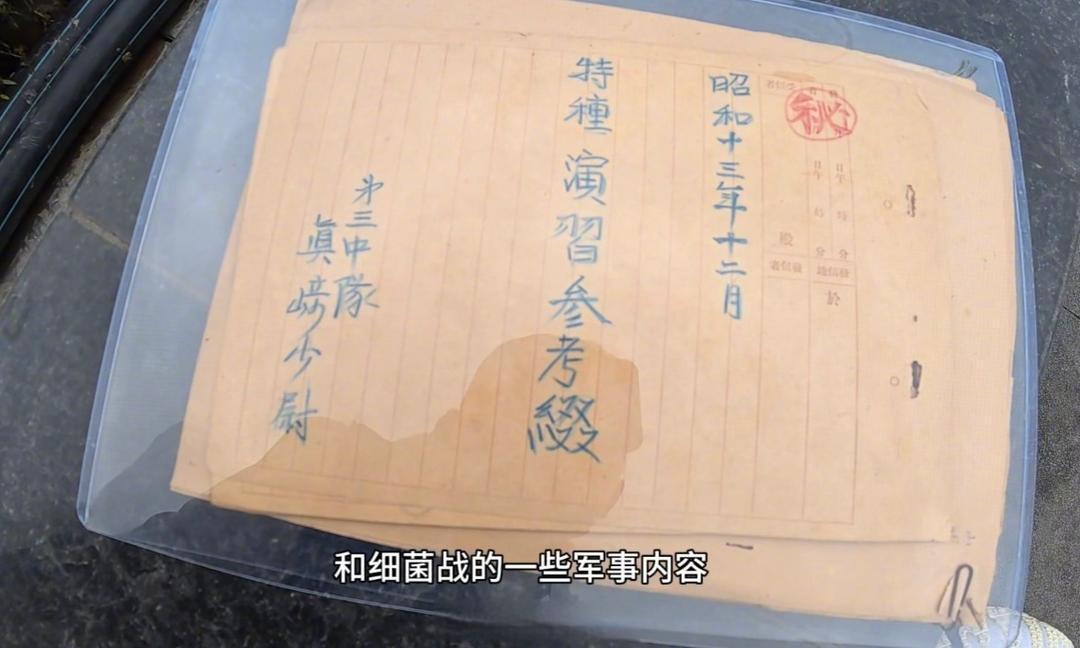 秘
昭和十三年十二月
特種演習参考綴
第三中隊
眞﨑少尉
和细菌战的一些军事内容